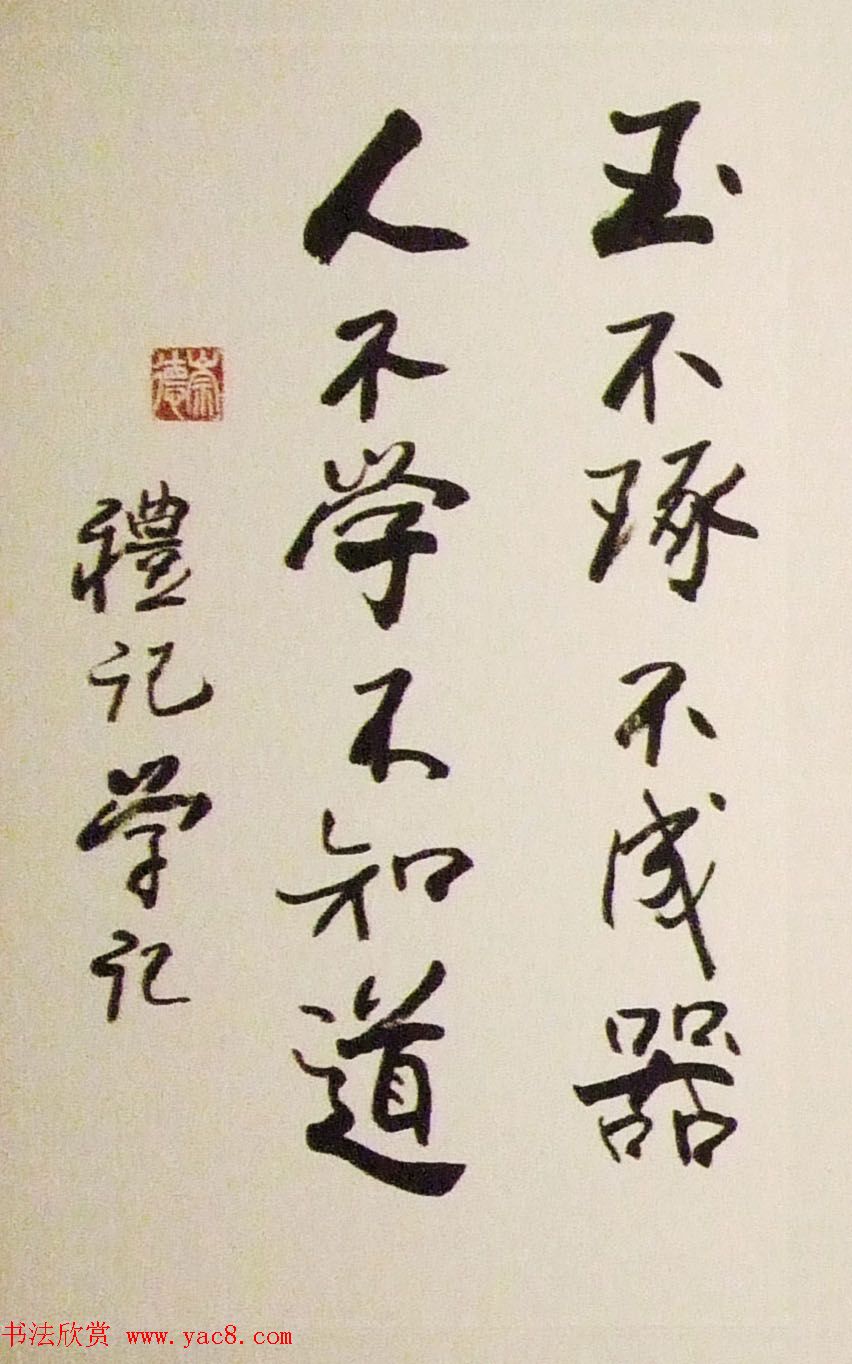 玉不琢不成器
人不学不知道
禮记学记
崇德
书法欣赏 www.yac8.com